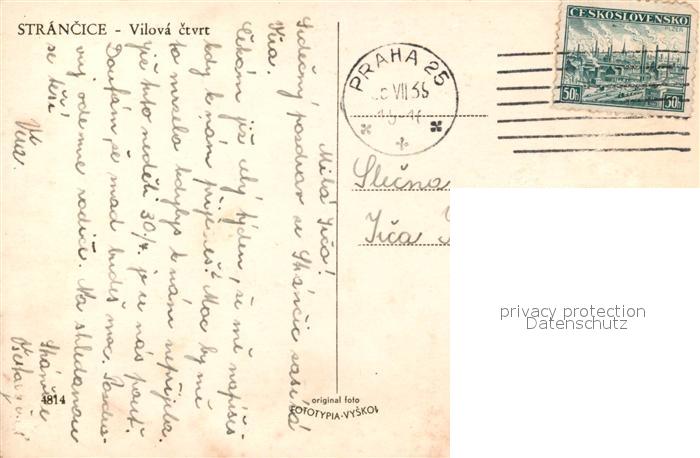 STRÁNČICE - Vilová čtvrt
Milá Irčo!
Srdečný pozdrav ze Stránčic zasílá
Věra.
Čekám již celý týden, že mě napíšeš
kdy k nám přijedeš? Moc by mě
to mrzelo kdybys k nám nepřijela.
Již tuto neděli 30./7. je u nás pouť.
Doufám, že snad budeš moc. Pozdra-
vuj odemne rodiče. Na shledanou
se těší
Věra.
Stránčice
4814
original foto
FOTOTYPIA-VYŠKOV
PRAHA 25
VII 36
ČESKOSLOVENSKO
PLZEŇ
50h 50h
Slečna
Irča
privacy protection
Datenschutz